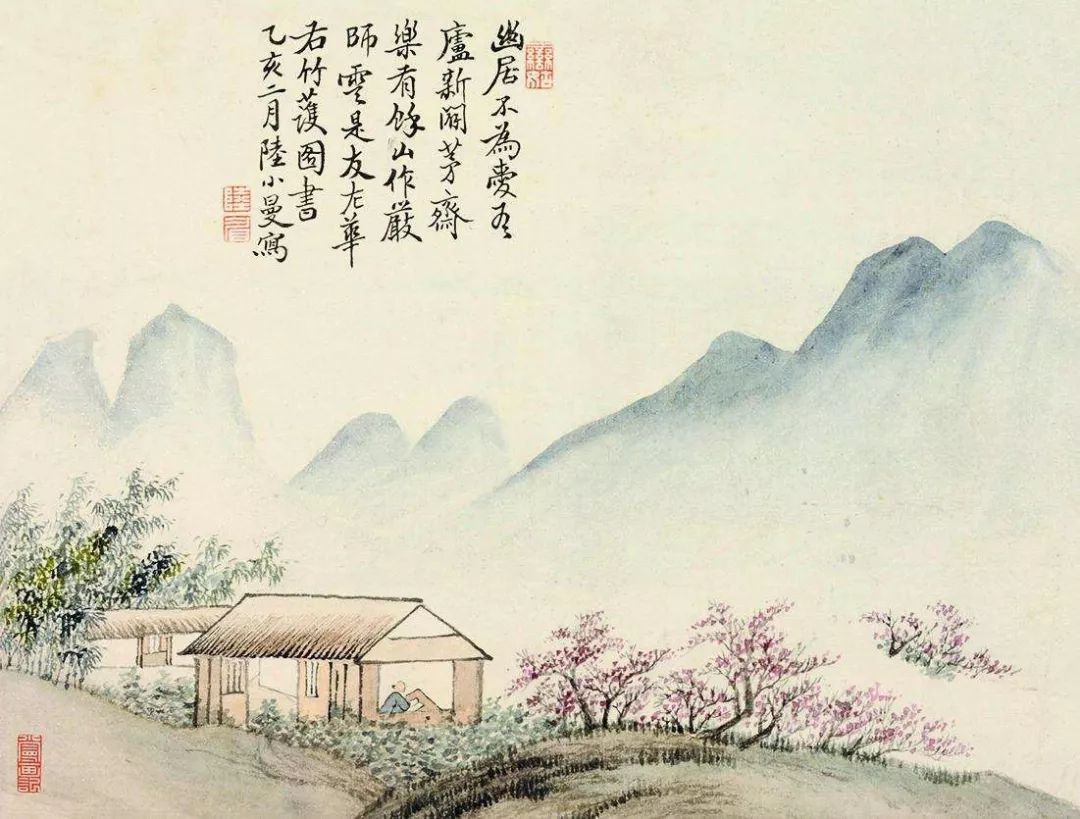 幽居不為愛吾
廬新開茅齋
樂有餘山作嚴
師雲是友左華
右竹護圖書
乙亥二月陸小曼寫